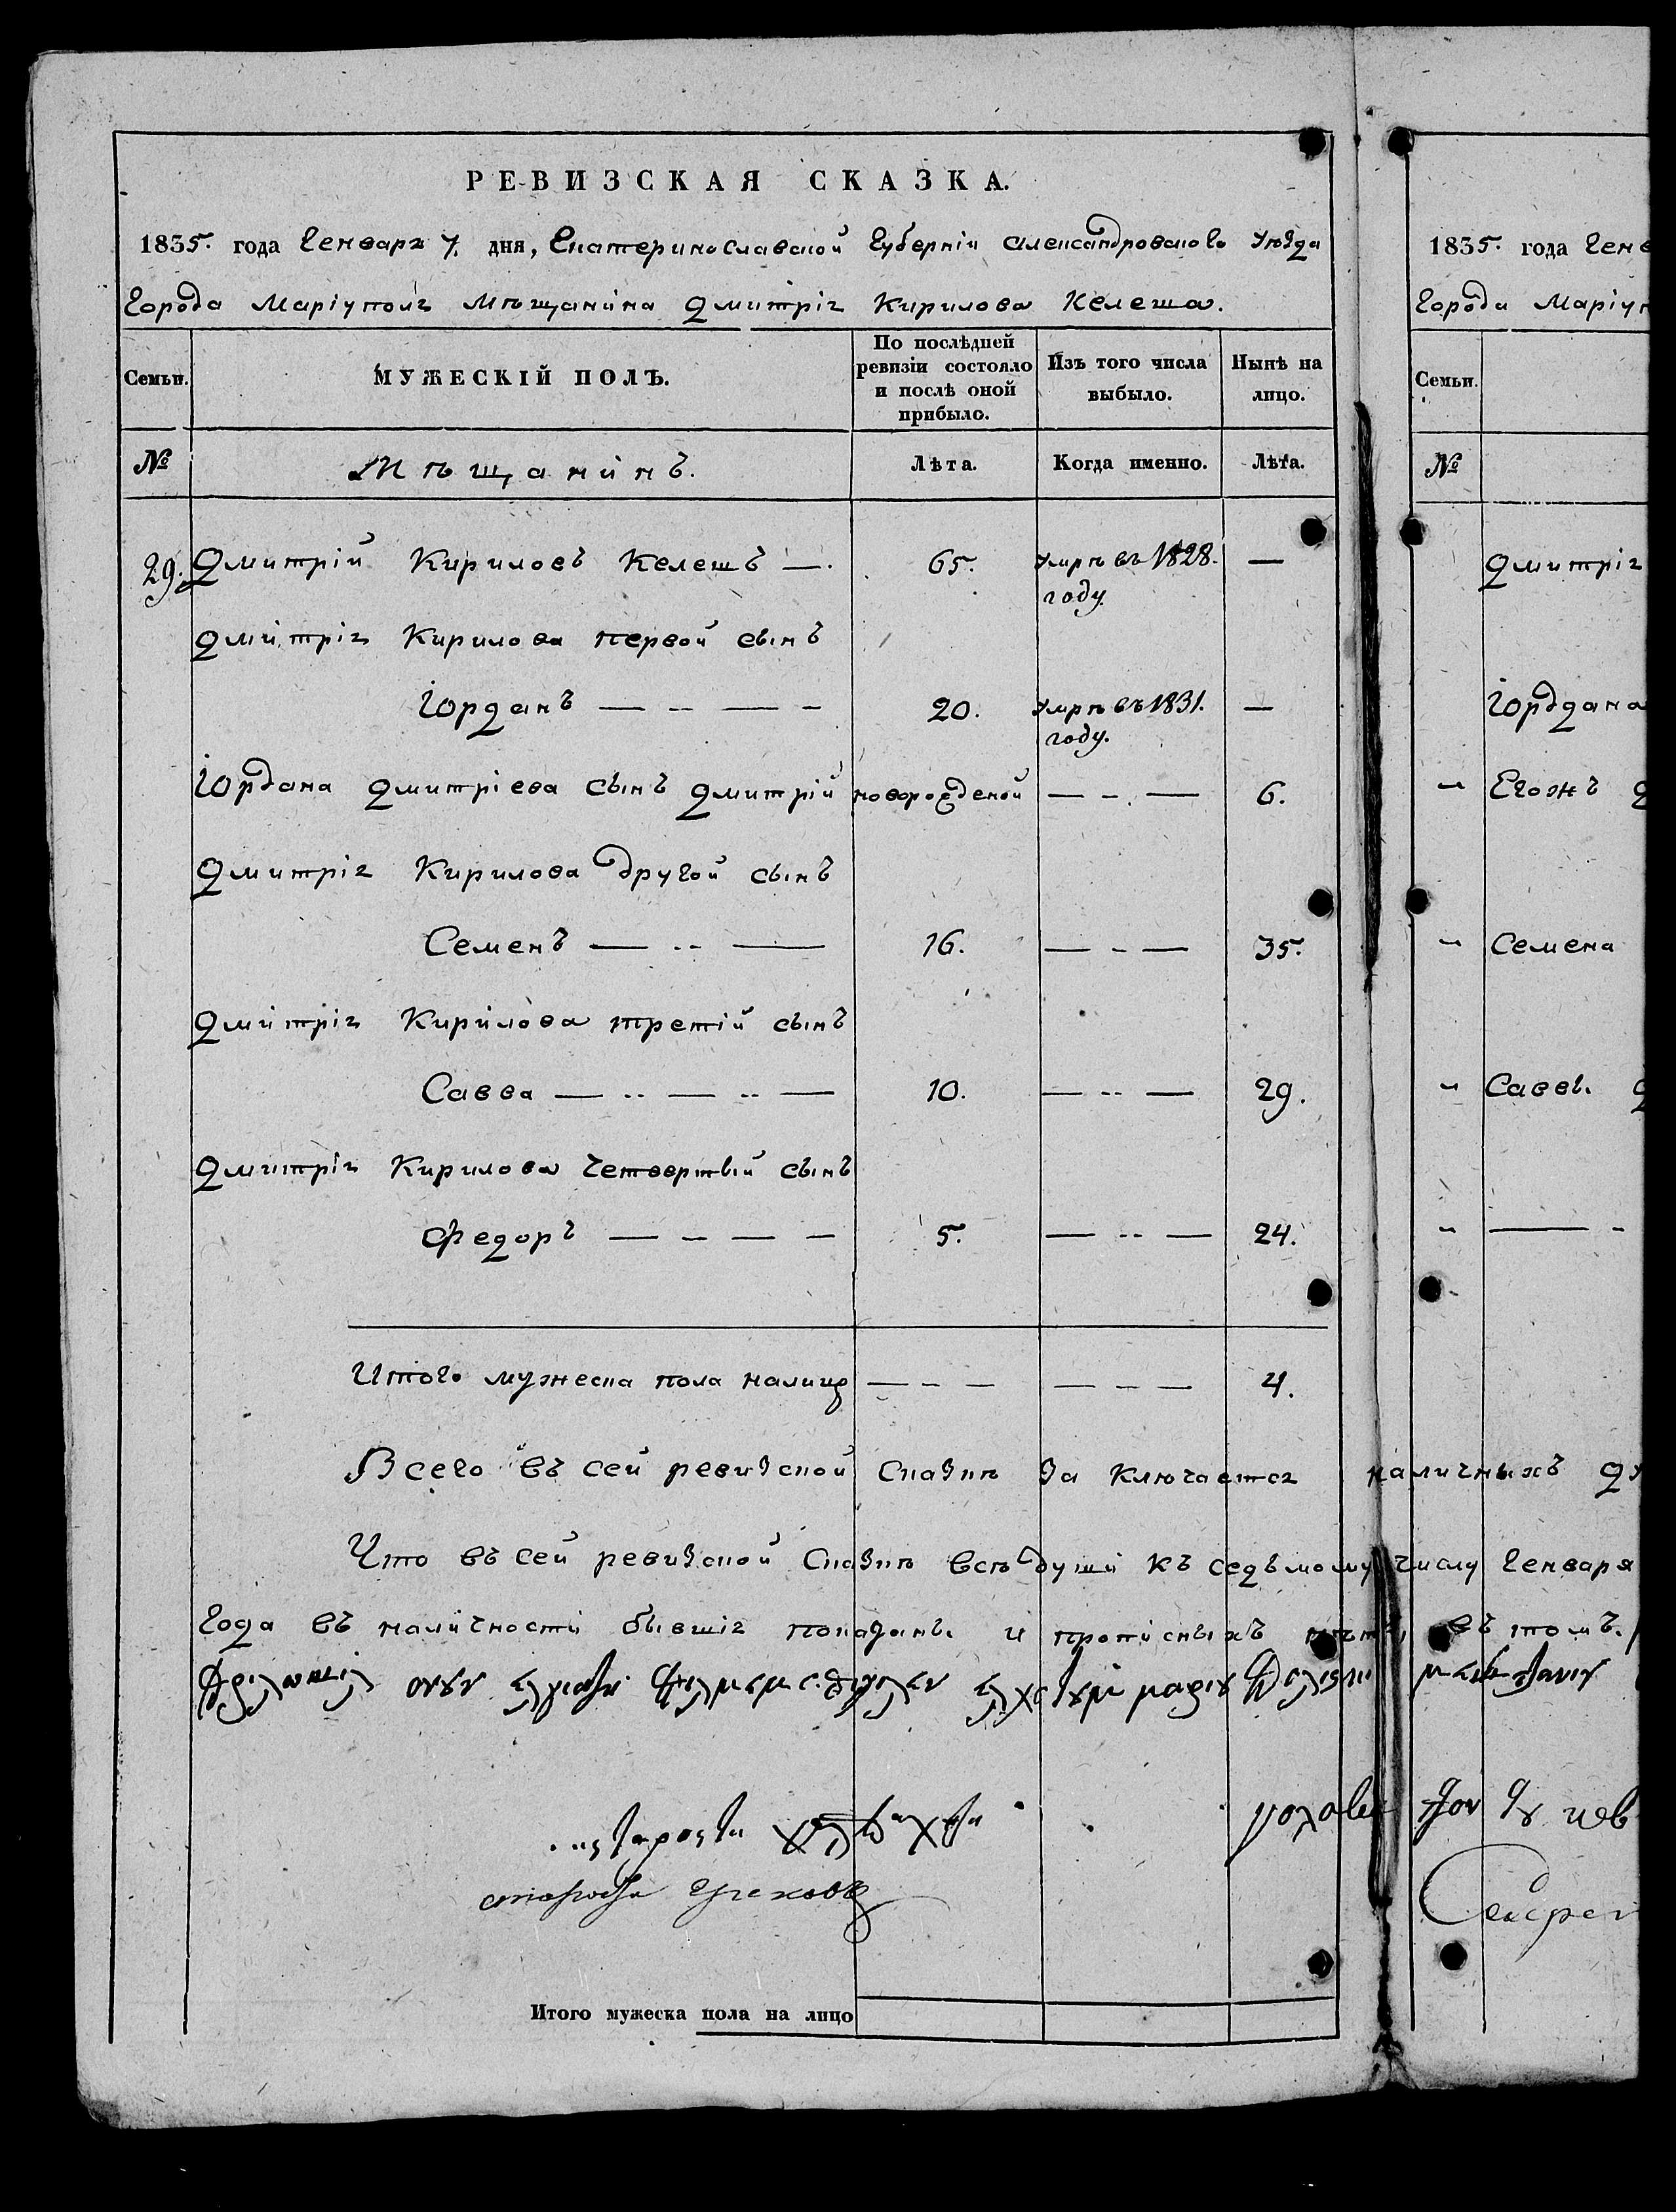 РЕВИЗСКАЯ СКАЗКА.
1835. года Генваря 7. дня, Екатеринославской Губерніи Александровского Уѣзда
Города Маріуполя Мѣщанина Дмитрія Кирилова Келеша.
Семьи. МУЖЕСКІЙ ПОЛЪ. По послѣдней ревизіи состояло и послѣ оной прибыло. Изъ того числа выбыло. Нынѣ на лицо.
№ Мѣщанинъ. Лѣта. Когда именно. Лѣта.
29. Дмитрій Кириловъ Келешъ —. 65. Умрѣ въ 1828. году. —
Дмитрія Кирилова первой сынъ
Іорданъ — -- — - 20. Умрѣ въ 1831. году. —
Іордана Дмитріева сынъ Дмитрій новорожденой — - — 6.
Дмитрія Кирилова другой сынъ
Семенъ — -- — 16. — - — 35.
Дмитрія Кирилова третій сынъ
Савва — -- — -- — 10. — -- — 29.
Дмитрія Кирилова четвертый сынъ
Федоръ — - — - 5. — -- — 24.
Итого мужеска пола налицо — - — — - — 4.
Всего въ сей ревизской Сказкѣ За ключается наличныхъ
Что въ сей ревизской Сказкѣ всѣ души къ седьмому числу Генваря
Года въ наличности бывшія показаны и прописныхъ нѣтъ, въ томъ.
староста Греховъ
Итого мужеска пола на лицо
1835. года Генв
Города Маріуп
Семьи.
№
Дмитрія
Іордана
" Егожъ
" Семена
" Саввы
" — -
Секрет